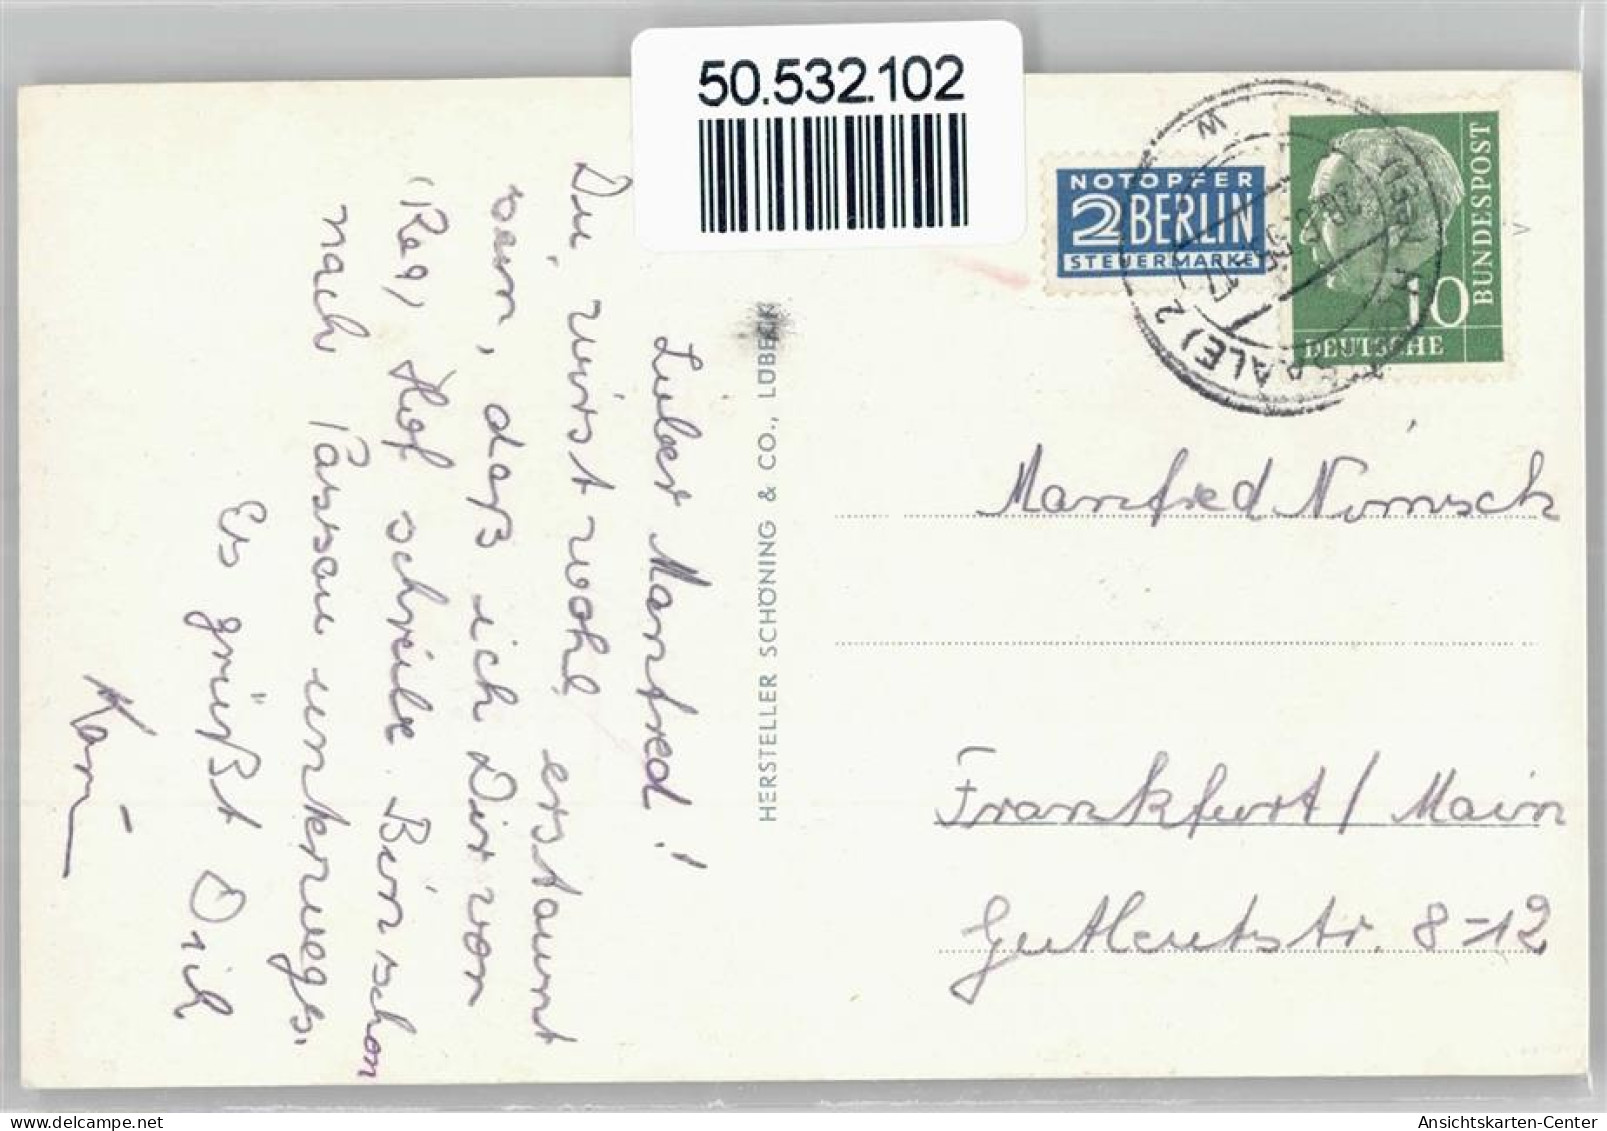 50.532.102
NOTOPFER
2 BERLIN
STEUERMARKE
BUNDESPOST
10
DEUTSCHE
(SAALE) 2
Lieber Manfred!
Du wirst wohl erstaunt
sein, daß ich Dir von
(Reg) Hof schreibe. Bin schon
nach Passau unterwegs.
Es grüßt Dich
Karin
HERSTELLER SCHÖNING & CO., LÜBECK
Manfred
Frankfurt / Main
Gutleutstr. 8-12
Ansichtskarten-Center